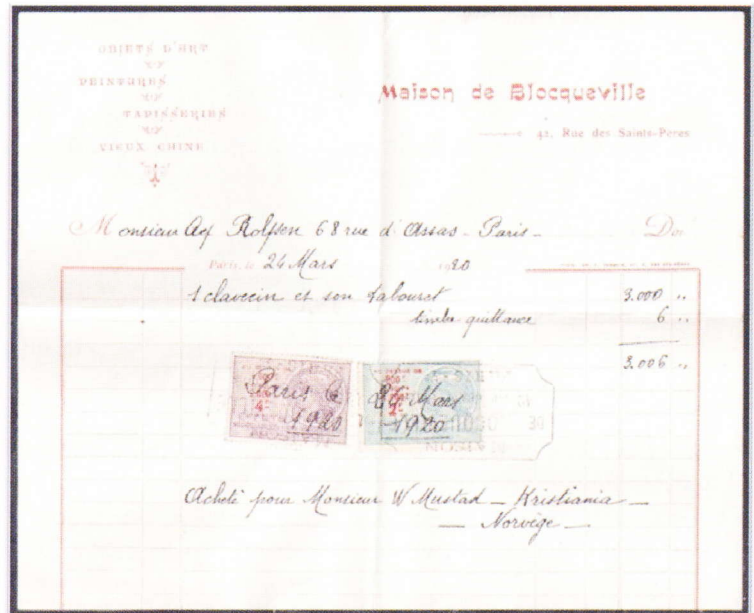 OBJETS D'ART
PEINTURES
TAPISSERIES
VIEUX CHINE
Maison de Blocqueville
42, Rue des Saints-Peres
Monsieur Axf Rolfsen 68 rue d'Assas - Paris - Doit
Paris, le 24 Mars 1920
1 clavecin et son tabouret 3.000 "
timbre quittance 6 "
3.006 "
Paris le 24 Mars
1920 1920
Acheté pour Monsieur W Mustad _ Kristiania _
_ Norvège _